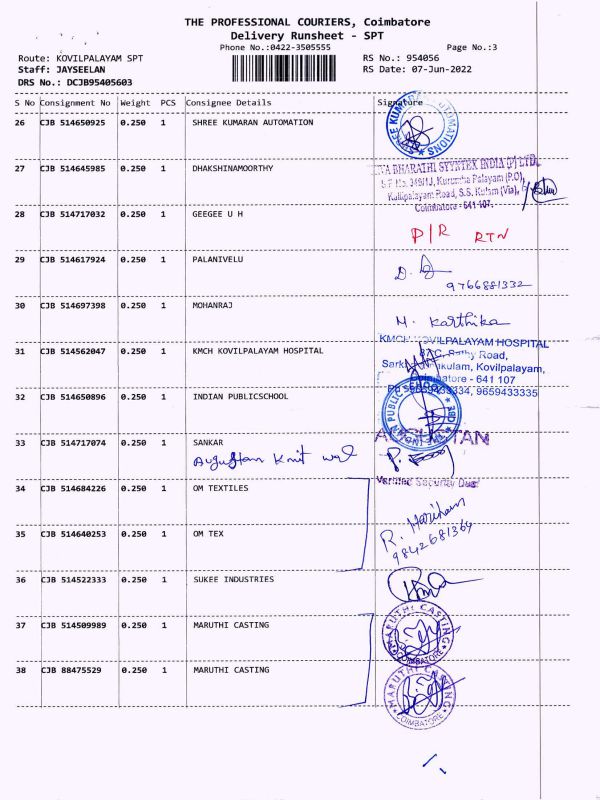 THE PROFESSIONAL COURIERS, Coimbatore
Delivery Runsheet - SPT
Phone No.:0422-3505555
Page No.:3
Route: KOVILPALAYAM SPT
RS No.: 954056
Staff: JAYSEELAN
RS Date: 07-Jun-2022
DRS No.: DCJB95405603
S No Consignment No Weight PCS Consignee Details Signature
26 CJB 514650925 0.250 1 SHREE KUMARAN AUTOMATION
27 CJB 514645985 0.250 1 DHAKSHINAMOORTHY
BHARATHI STYNTEX INDIA (P) LTD.
S.F No. 349/1J, Kurumba Palayam (P.O),
Kalipalayam Road, S.S. Kulam (Via),
Coimbatore - 641 107.
28 CJB 514717032 0.250 1 GEEGEE U H
P/R RTN
29 CJB 514617924 0.250 1 PALANIVELU
9766881332
30 CJB 514697398 0.250 1 MOHANRAJ
M. Karthika
31 CJB 514562047 0.250 1 KMCH KOVILPALAYAM HOSPITAL
KMCH KOVILPALAYAM HOSPITAL
Road,
Kovilpalayam,
Coimbatore - 641 107
9659433335
32 CJB 514650896 0.250 1 INDIAN PUBLICSCHOOL
33 CJB 514717074 0.250 1 SANKAR
Verified Security Dept
34 CJB 514684226 0.250 1 OM TEXTILES
R. Hariharan
9842681364
35 CJB 514640253 0.250 1 OM TEX
36 CJB 514522333 0.250 1 SUKEE INDUSTRIES
37 CJB 514509989 0.250 1 MARUTHI CASTING
MARUTHI CASTING
COIMBATORE
38 CJB 88475529 0.250 1 MARUTHI CASTING
MARUTHI CASTING
COIMBATORE